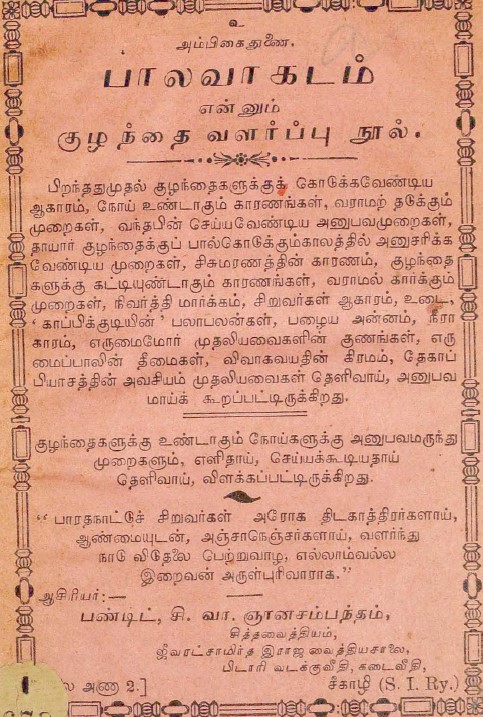 உ
அம்பிகைதுணை.
பாலவாகடம்
என்னும்
குழந்தை வளர்ப்பு நூல்.
பிறந்ததுமுதல் குழந்தைகளுக்குக் கொடுக்கவேண்டிய
ஆகாரம், நோய் உண்டாகும் காரணங்கள், வராமற் தடுக்கும்
முறைகள், வந்தபின் செய்யவேண்டிய அனுபவமுறைகள்,
தாயார் குழந்தைக்குப் பால்கொடுக்கும்காலத்தில் அனுசரிக்க
வேண்டிய முறைகள், சிசுமரணத்தின் காரணம், குழந்தை
களுக்கு கட்டியுண்டாகும் காரணங்கள், வராமல் கார்க்கும்
முறைகள், நிவர்த்தி மார்க்கம், சிறுவர்கள் ஆகாரம், உடை,
‘காப்பிக்குடியின்’ பலாபலன்கள், பழைய அன்னம், நீரா
காரம், எருமைமோர் முதலியவைகளின் குணங்கள், எரு
மைப்பாலின் தீமைகள், விவாகவயதின் கிரமம், தேகாப்
பியாசத்தின் அவசியம் முதலியவைகள் தெளிவாய், அனுபவ
மாய்க் கூறப்பட்டிருக்கிறது.
குழந்தைகளுக்கு உண்டாகும் நோய்களுக்கு அனுபவமருந்து
முறைகளும், எளிதாய், செய்யக்கூடியதாய்
தெளிவாய், விளக்கப்பட்டிருக்கிறது.
“பாரதநாட்டுச் சிறுவர்கள் அரோக திடகாத்திரர்களாய்,
ஆண்மையுடன், அஞ்சாநெஞ்சர்களாய், வளர்ந்து
நாடு விடுதலை பெற்றுவாழ, எல்லாம்வல்ல
இறைவன் அருள்புரிவாராக.”
ஆசிரியர்:—
பண்டிட், சி. வா. ஞானசம்பந்தம்,
சித்தவைத்தியம்,
ஜீவரட்சாமிர்த இராஜ வைத்தியசாலை,
பிடாரி வடக்குவீதி, கடைவீதி,
லை அணு 2.] சீகாழி (S. I. Ry.)